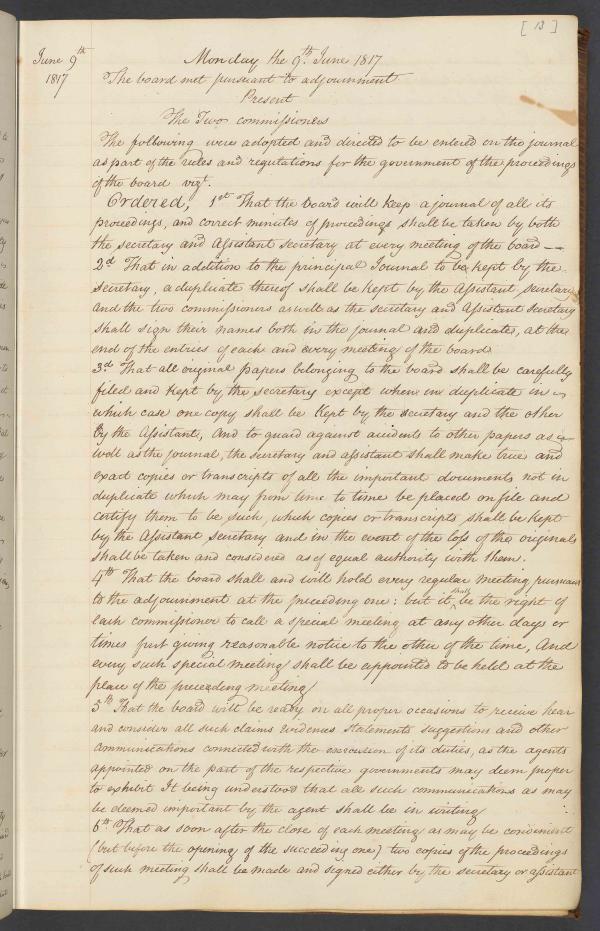 [ 13 ]
June 9th
1817
Monday the 9th June 1817
The board met pursuant to adjournment
Present
The Two commissioners
The following were adopted and directed to be entered on the journal
as part of the rules and regulations for the government of the proceedings
of the board vizt.
Ordered, 1st That the board will keep a journal of all its
proceedings, and correct minutes of proceedings shall be taken by both
the secretary and Assistant secretary at every meeting of the board —
2d That in addition to the principal Journal to be kept by the
secretary, a duplicate thereof shall be kept by the Assistant, secretary
and the two commissioners as well as the secretary and Assistant Secretary
shall sign their names both in the journal and duplicate, at the
end of the entries of each and every meeting of the board
3d. That all original papers belonging to the board shall be carefully
filed and kept by the secretary except when in duplicate in
which case one copy shall be kept by the secretary and the other
by the Assistant, and to guard against accidents to other papers as
well as the journal, the secretary and assistant shall make true and
exact copies or transcripts of all the important documents not in
duplicate which may from time to time be placed on file and
certify them to be such, which copies or transcripts shall be kept
by the Assistant secretary and in the event of the loss of the originals
shall be taken and considered as of equal authority with them.
4th That the board shall and will hold every regular meeting pursuant
to the adjournment at the preceeding one: but it shall be the right of
each commissioner to call a special meeting at any other day or
times first giving reasonable notice to the other of the time, And
every such special meeting shall be appointed to be held at the
place of the preceeding meeting
5th That the board will be ready on all proper occasions to receive hear
and consider all such claims evidences statements suggestions and other
communications connected with the execution of its duties, as the agents
appointed on the part of the respective governments may deem proper
to exhibit It being understood that all such communications as may
be deemed important by the agent shall be in writing
6th That as soon after the close of each meeting as may be convenient
(but before the opening of the succeeding one) two copies of the proceedings
of such meeting shall be made and signed either by the secretary or assistant